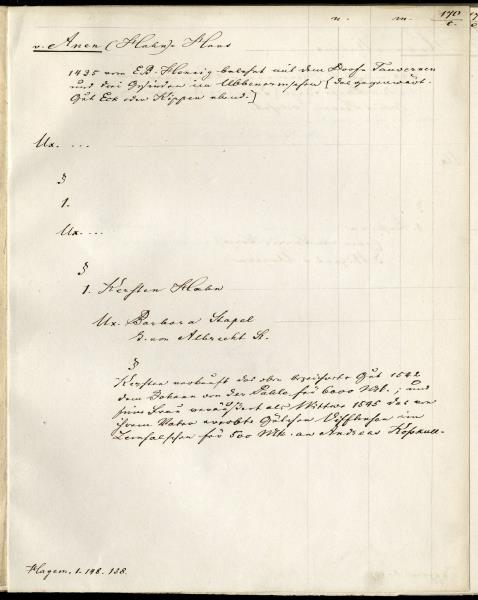 n. m. 170
t.
v. Anen (Hahn). Hans
1435 vom E.B. Henning belehnt mit dem Dorfe
und drei Gesinden in Ubbenormschen [das gegenwärt.
Gut Eck oder Köppen ebend.]
Ux. ...
§
1.
Ux. ...
§
1. Kersten Hahn
Ux. Barbara Stapel
T. von Albrecht S.
§
Kersten verkauft das oben bezeichnete Gut 1542
dem Johann von der Pahle für 6000 Mk.; und
seine Frau veräußert als Wittwe 1545 das von
ihrem Vater ererbte Gütchen im
für 500 Mk. an Andreas Koskull.
Hagem. 1. 148. 158.